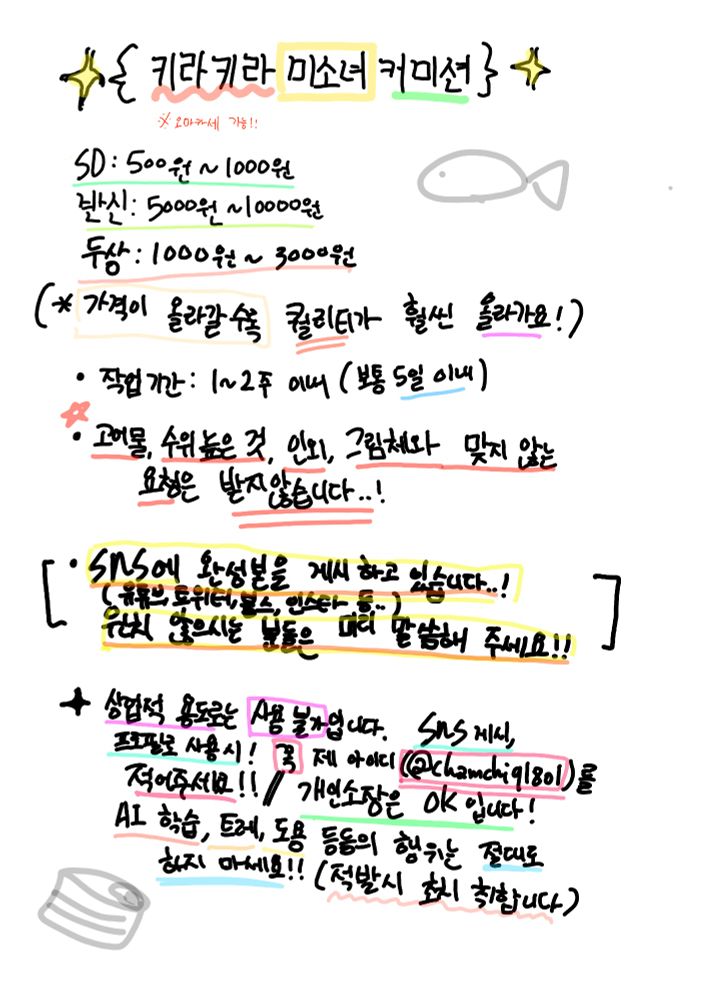 { 키라키라 미소녀 커미션 }
※ 오마카세 가능!!
SD: 500원 ~ 1000원
반신: 5000원 ~ 10000원
두상: 1000원 ~ 3000원
(※ 가격이 올라갈수록 퀄리티가 훨씬 올라가요!)
• 작업기간: 1~2주 이내 (보통 5일 이내)
• 고어물, 수위높은 것, 인외, 그림체와 맞지 않는
요청은 받지않습니다..!
[ • SNS에 완성본을 게시하고 있습니다..!
(유튜브, 트위터, 블스, 인스타 등..)
원치 않으시는 분들은 미리 말씀해 주세요!! ]
상업적 용도로는 사용 불가입니다. SNS게시,
프로필로 사용시! 꼭 제 아이디 (@chamchi91801)를
적어주세요!! // 개인소장은 OK입니다!
AI 학습, 트레, 도용 등등의 행위는 절대로
하지 마세요!! (적발시 조치 취합니다)